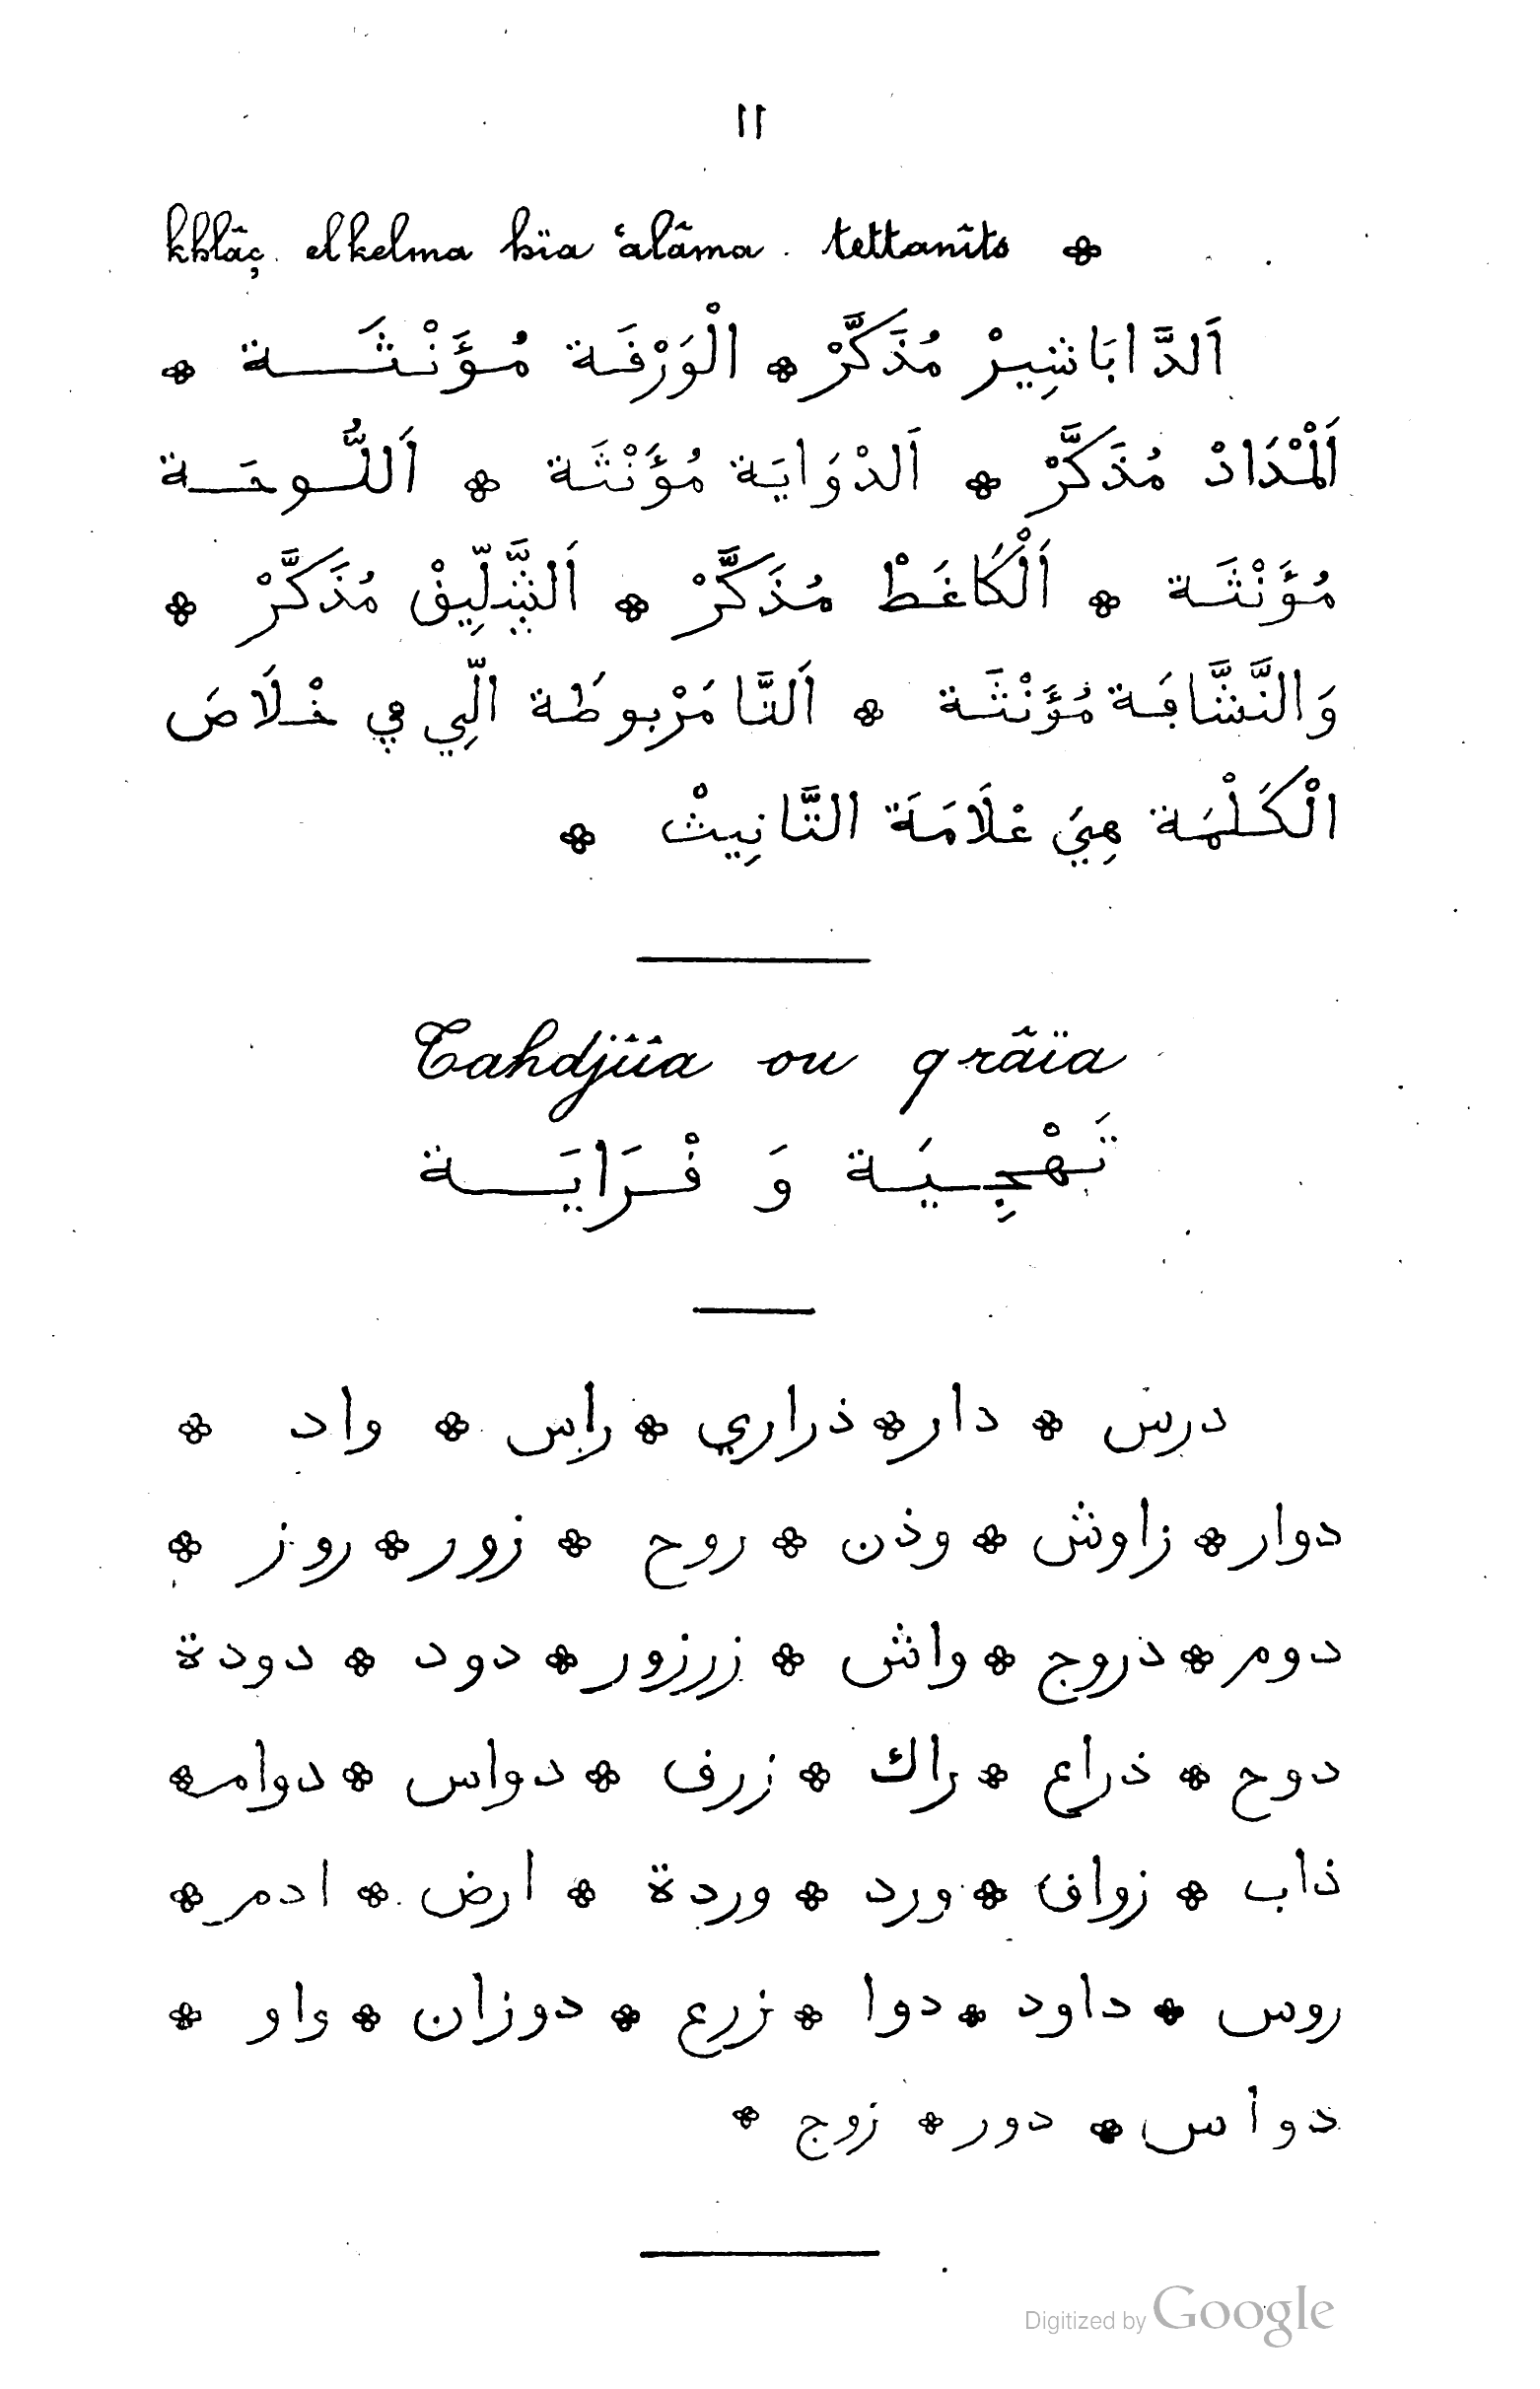 ١١
khlâç elkelma hïa ʿalâma tettanîts ❀
اَلدَّابَاشِيرْ مُذَكَّرْ ❀ الْوَرْفَة مُؤَنْثَة ❀
اَلْمْدَادْ مُذَكَّرْ ❀ اَلدْوَايَة مُؤَنْثَة ❀ اَللُّوحَة
مُؤَنْثَة ❀ اَلْكَاغَطْ مُذَكَّرْ ❀ مُذَكَّرْ ❀
وَالنَّشَّابَة مُؤَنْثَة ❀ اَلتَّا مَرْبوطَة الِّي في خْلَاصَ
الْكَلْمَة هِيَ عْلَامَة التَّانِيثْ ❀
Tahdjîîa ou qrâïa
تَهْجِيَة وَ فْرَايَة
درس ❀ دار ❀ ذراري ❀ راس ❀ واد ❀
دوار ❀ زاوش ❀ وذن ❀ روح ❀ زور ❀ روز ❀
دوم ❀ دروج ❀ واش ❀ زرزور ❀ دود ❀ دودة
دوح ❀ ذراع ❀ راك ❀ زرف ❀ دواس ❀ دوام ❀
ذاب ❀ زواف ❀ ورد ❀ وردة ❀ ارض ❀ ادم ❀
روس ❀ داود ❀ دوا ❀ زرع ❀ دوزان ❀ واو ❀
دواس ❀ دور ❀ زوج ❀
Digitized by Google